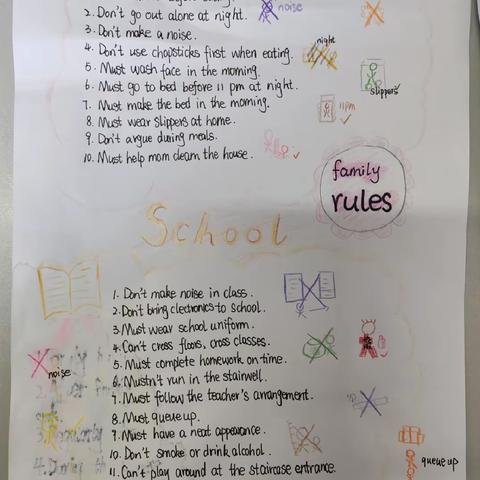 2. Don't go out alone at night.
noise
3. Don't make a noise.
4. Don't use chopsticks first when eating.
night
5. Must wash face in the morning.
6. Must go to bed before 11 pm at night.
slippers
7. Must make the bed in the morning.
11pm
8. Must wear slippers at home.
9. Don't argue during meals.
10. Must help mom cleam the house.
family
rules
School
1. Don't make noise in class.
2. Don't bring clectronics to school.
3. Must wear school uniform.
4. Can't cross floors, cross classes.
5. Must complete homework on time.
noise
6. Mustn't run in the stairwell.
7. Must follow the teacher's arrangement.
8. Must queue up.
9. Must have a neat appearance.
10. Don't smoke or drink alcohol.
queue up
11. Can't play around at the staircase entrance.